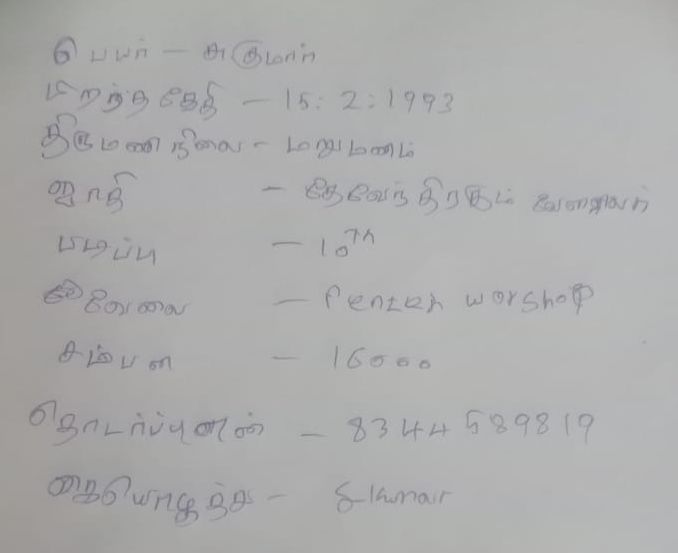 பெயர் - சுகுமார்
பிறந்ததேதி - 15:2:1993
திருமணநிலை - மறுமணம்
ஜாதி - தேவேந்திரகுடம் வேளாளர்
படிப்பு - 10th
வேலை - worshop
சம்பள - 16000
தொடர்ப்புஎண் - 8344589819
கையொழுத்து - S-Kumar